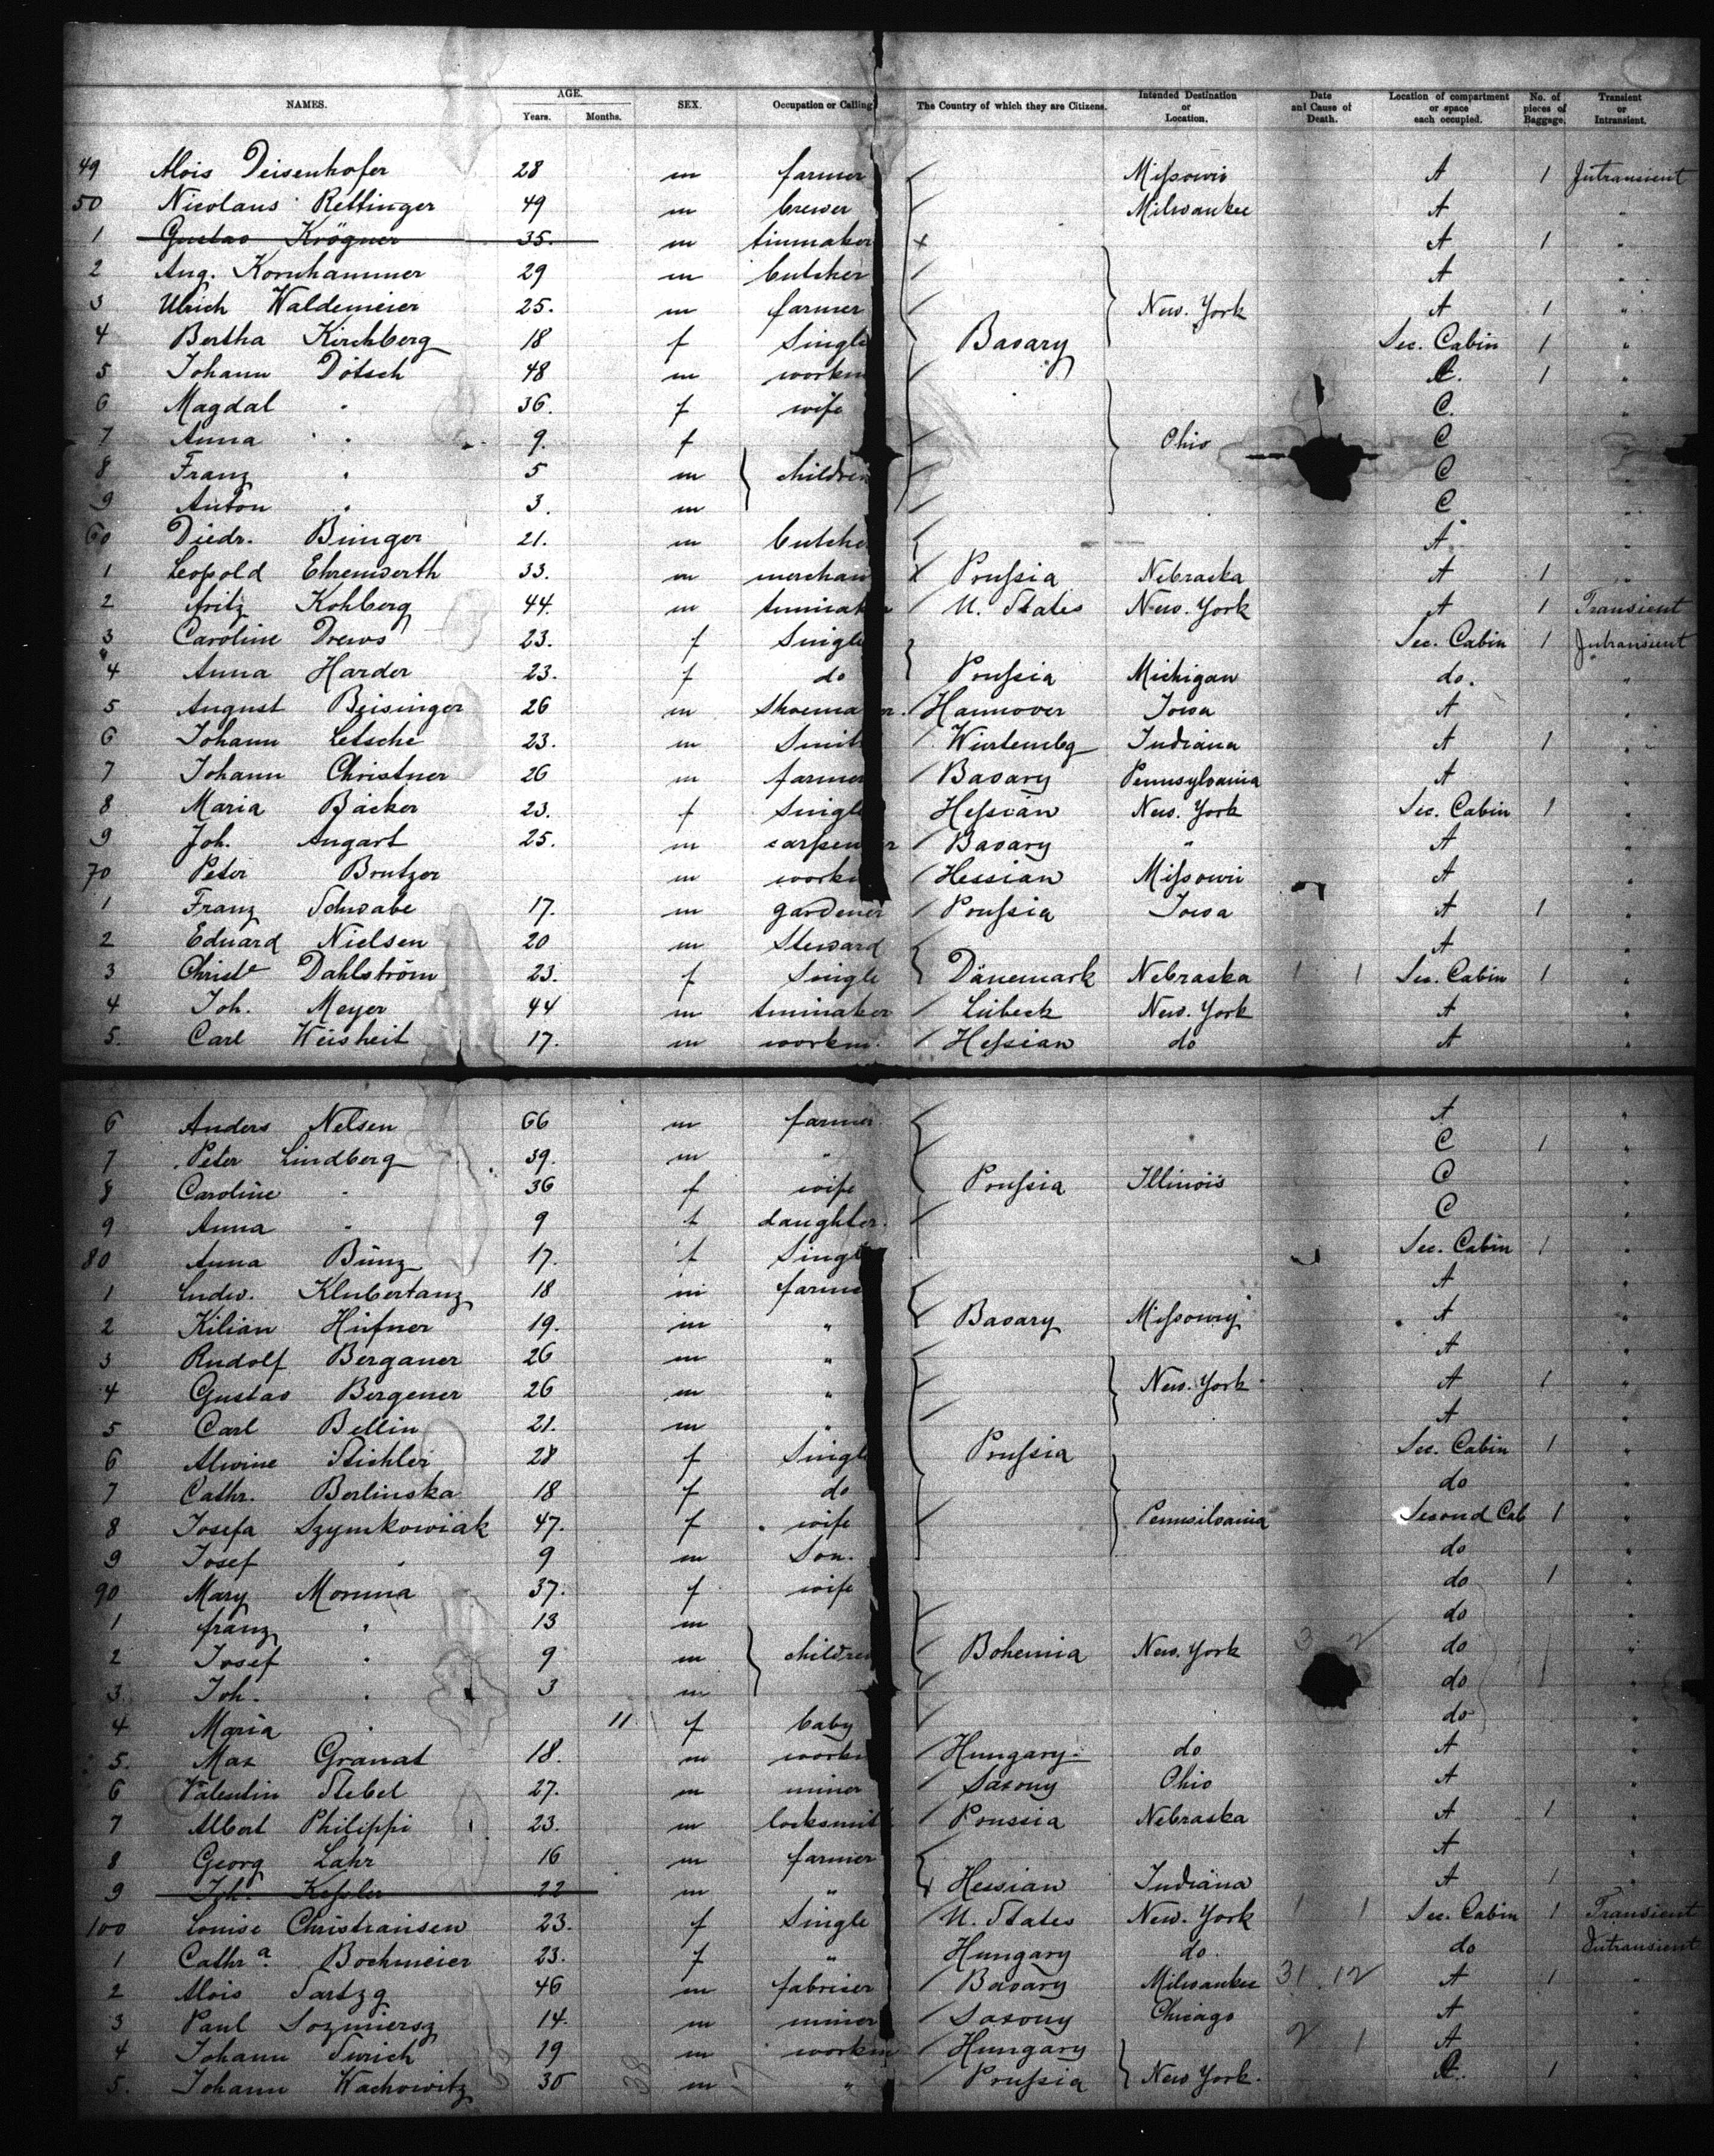 NAMES. AGE. Years. Months. SEX. Occupation or Calling The Country of which they are Citizens. Intended Destination or Location. Date and Cause of Death. Location of compartment or space each occupied. No. of pieces of Baggage. Transient or Intransient.
49 Alois Deisenhofer 28 m farmer Missowio A 1 Intransient
50 Nicolaus Rettinger 49 m brewer Milwaukee A "
1 Gustav Krögner 35. m tinmaker x A 1 "
2 Aug. Kornhammer 29 m butcher A "
3 Ulrich Waldemeier 25. m farmer New. York A 1 "
4 Bertha Kirchberg 18 f Single Bavary Sec. Cabin 1 "
5 Johann Dötsch 48 m workm C. 1 "
6 Magdal " 36. f wife C. "
7 Anna " 9. f Ohio C "
8 Franz " 5 m children C "
9 Anton " 3. m C "
60 Diedr. Bünger 21. m butche A "
1 Leopold Ehrenwerth 33. m merchan x Prussia Nebraska A 1 "
2 Fritz Kohlberg 44. m tinmak U. States New. York A 1 Transient
3 Caroline Drews 23. f Single Sec. Cabin 1 Intransient
4 Anna Harder 23. f do Prussia Michigan do. "
5 August Beisinger 26 m Shoema r. Hannover Iowa A "
6 Johann Letsche 23. m Smit Würtembg Indiana A 1 "
7 Johann Christner 26 m farmer Bavary Pennsylvania A "
8 Maria Bäcker 23. f Single Hessian New. York Sec. Cabin 1 "
9 Joh. Angart 25. m carpen r Bavary " A "
70 Peter Brutzer m workm Hessian Missowri A "
1 Franz Schwabe 17. m gardener Prussia Iowa A 1 "
2 Eduard Nielsen 20 m Steward A "
3 Christe Dahlström 23. f Single Dänemark Nebraska 1 1 Sec. Cabin 1 "
4 Joh. Meyer 44 m tinmaker Lübeck New. York A "
5. Carl Weisheit 17. m workm. Hessian do A "
6 Anders Nelsen 66 m farmer A "
7 Peter Lindberg 39. m " C 1 "
8 Caroline " 36 f wife Prussia Illinois C "
9 Anna " 9 f daughter. C "
80 Anna Bünz 17. f Single Sec. Cabin 1 "
1 Ludw. Klubertanz 18 m farme A "
2 Kilian Hüfner 19. m " Bavary Missowry A "
3 Rudolf Berganer 26 m " A "
4 Gustav Bergener 26 m " New. York A 1 "
5 Carl Bellin 21. m " A "
6 Alwine Stichler 28 f Singl Prussia Sec. Cabin 1 "
7 Cathr. Berlinska 18 f do do "
8 Josefa Szymkowiak 47. f wife Pennsilvania Second Cab 1 "
9 Josef " 9 m Son. do "
90 Mary Moruna 37. f wife do 1 "
1 franz " 13 m do "
2 Josef " 9 m childre Bohemia New. York 3 2 do "
3. Joh. " 3 m do 1 "
4 Maria " 11 f baby do "
5. Max Granat 18. m workm Hungary do A "
6 Valentin Stebel 27. m miner Saxony Ohio A "
7 Albert Philippi 23. m locksmith Prussia Nebraska A 1 "
8 Georg Lahr 16 m farmer A "
9 Joh. Kessler 22 m " x Hessian Indiana A 1 "
100 Louise Christiansen 23. f Single U. States New. York 1 1 Sec. Cabin 1 Transient
1 Cathra. Bochmeier 23. f " Hungary do. do Intransient
2 Alois Sartzg 46 m fabriser Bavary Milwaukee 31 12 A 1 "
3 Paul Sozmiersz 14. m miner Saxony Chicago A "
4 Johann Turich 19 m workm Hungary 2 1 A "
5. Johann Wachowitz 30 m " Prussia New York. A. 1 "